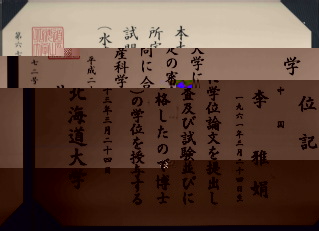 学位記
中国
李雅娟
一九六一年三月二十四日生
本学に学位論文を提出し
所定の審査及び試験並びに
試問に合格したので博士
(水産科学)の学位を授与する
平成二十三年三月二十四日
北海道大学